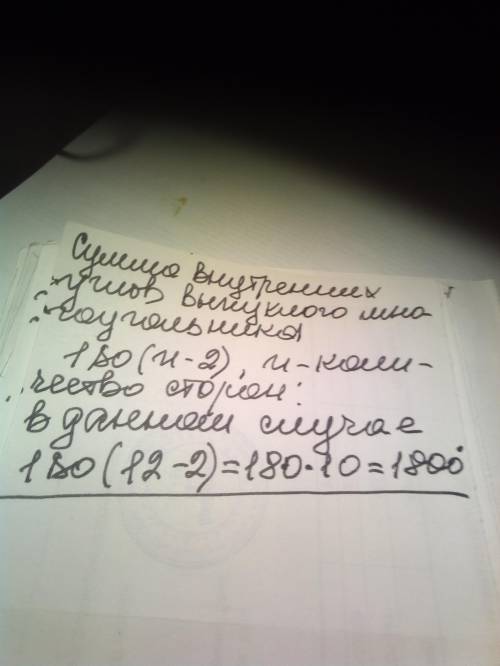 Сумма внутренних
углов выпуклого мно
гоугольника
180(n-2), n-коли-
чество сторон:
в данном случае
180(12-2)=180·10=1800